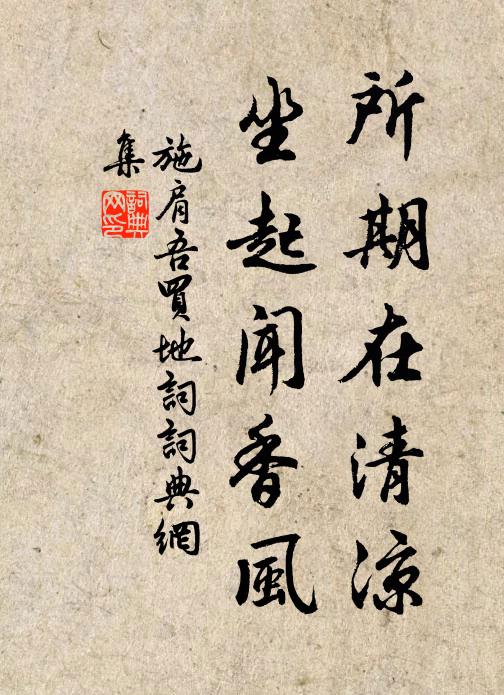 所期在清涼
坐起聞香風
施肩吾買地詞詞典網
集
詞典网印